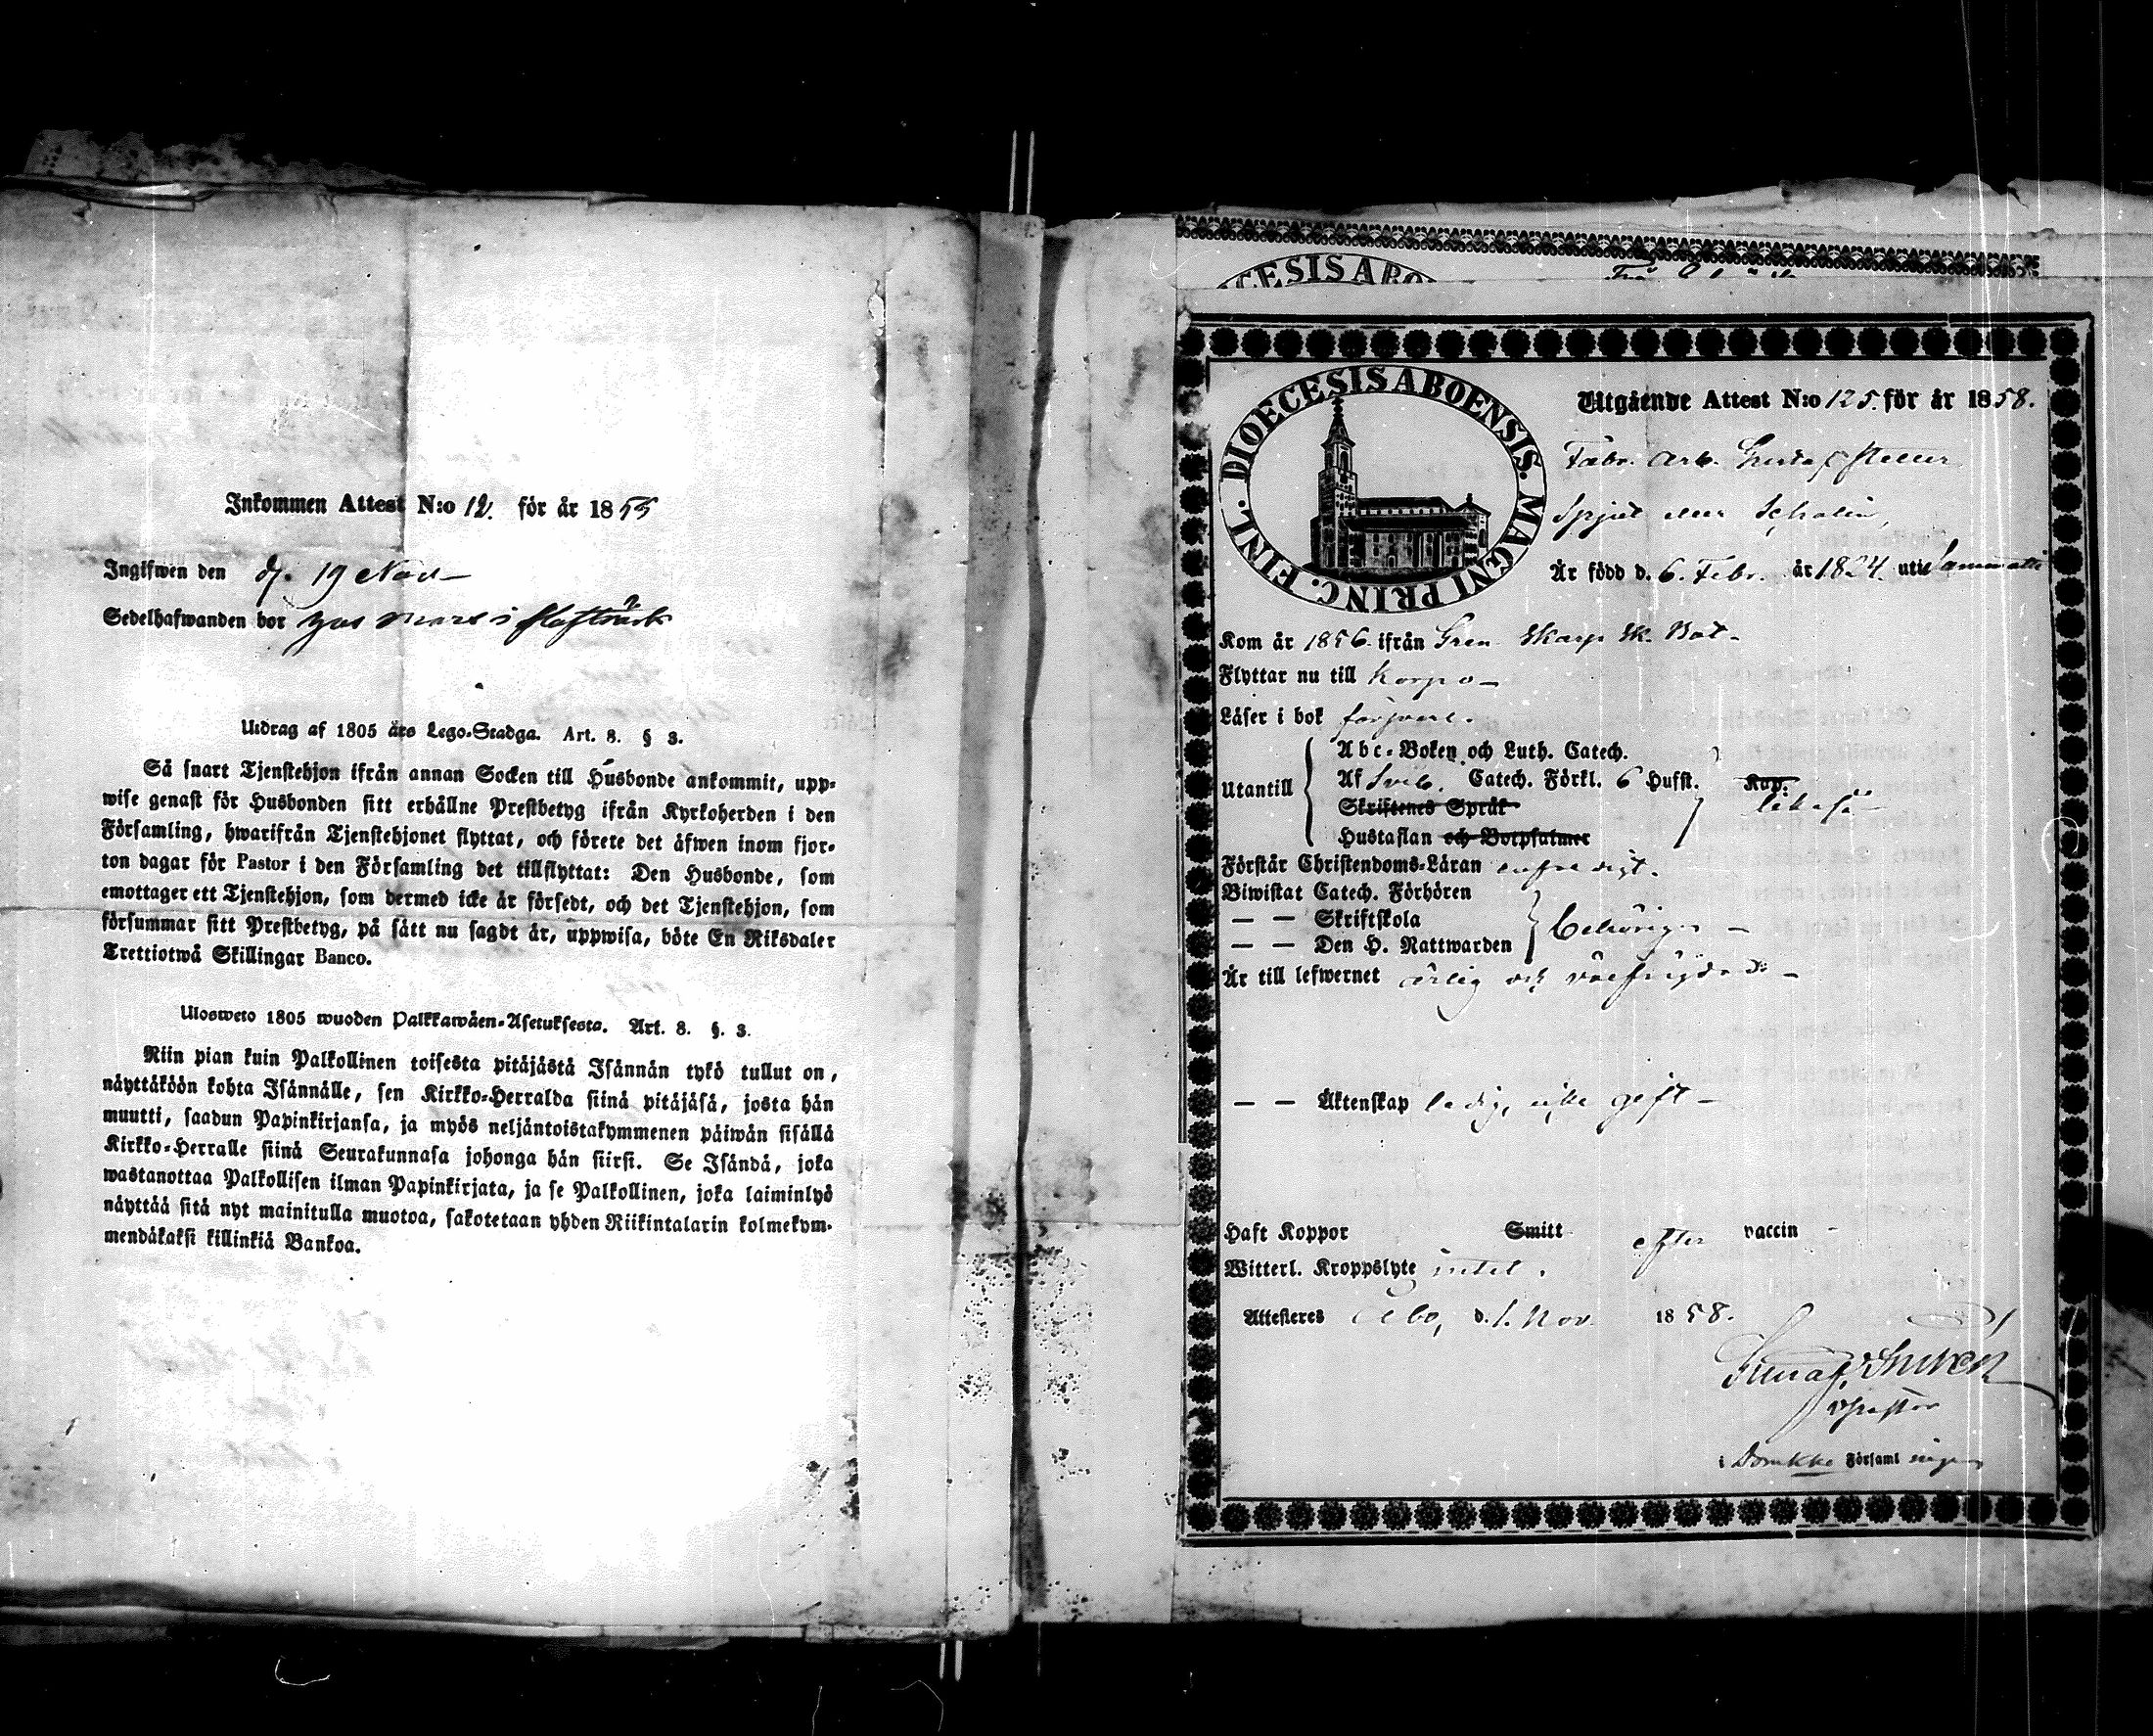 Inkommen Attest N:o 12. för år 1855
Ingifwen den d. 19 Nov
Sedelhafwanden bor
Utdrag af 1805 års Lego-Stadga. Art. 8. § 3.
Så snart Tjenstehjon ifrån annan Socken till Husbonde ankommit, upp-
wise genast för Husbonden sitt erhållne Prestbetyg ifrån Kyrkoherden i den
Församling, hwarifrån Tjenstehjonet flyttat, och förete det äfwen inom fjor-
ton dagar för Pastor i den Församling det tillflyttat: Den Husbonde, som
emottager ett Tjenstehjon, som dermed icke är försedt, och det Tjenstehjon, som
försummar sitt Prestbetyg, på sätt nu sagdt är, uppwisa, böte En Riksdaler
Trettiotwå Skillingar Banco.
Ulosweto 1805 wuoden Palkkawäen-Asetuksesta. Art. 8. §. 3.
Niin pian kuin Palkollinen toisesta pitäjästä Isännän tykö tullut on,
näyttäköön kohta Isännälle, sen Kirkko-Herralda siinä pitäjäsä, josta hän
muutti, saadun Papinkirjansa, ja myös neljäntoistakymmenen päiwän sisällä
Kirkko-Herralle siinä Seurakunnasa johonga hän siirsi. Se Isändä, joka
wastanottaa Palkollisen ilman Papinkirjata, ja se Palkollinen, joka laiminlyö
näyttää sitä nyt mainitulla muotoa, sakotetaan yhden Riikintalarin kolmekym-
mendäkaksi killinkiä Bankoa.
CESIS ABO
DIOECESIS ABOENSIS. MAGNI PRINC. FINL.
Utgående Attest N:o 125. för år 1858.
Fabr. Arb. Gustaf
Spjut eller
Är född d. 6. Febr. år 1824. uti Sammatti
Kom år 1856. ifrån Gren. Skarp Sk. Bat.
Flyttar nu till Korpo
Läser i bok förswarl.
Utantill
Abc-Boken och Luth. Catech.
Af Sveb. Catech. Förkl. 6 Hufst. Kap.
Skriftenes Språk
Hustaflan och Botpsalmer
likaså
Förstår Christendoms-Läran enfaldigt.
Biwistat Catech. Förhören
— — Skriftskola
— — Den H. Nattwarden
behörigen
Är till lefwernet ärlig och välfrejdad
— — Äktenskap ledig, icke gift
Haft Koppor Smitt efter vaccin
Witterl. Kroppslyte intet.
Attesteres Åbo, d. 1. Nov. 1858.
v Pastor
i Domkko Församlingen